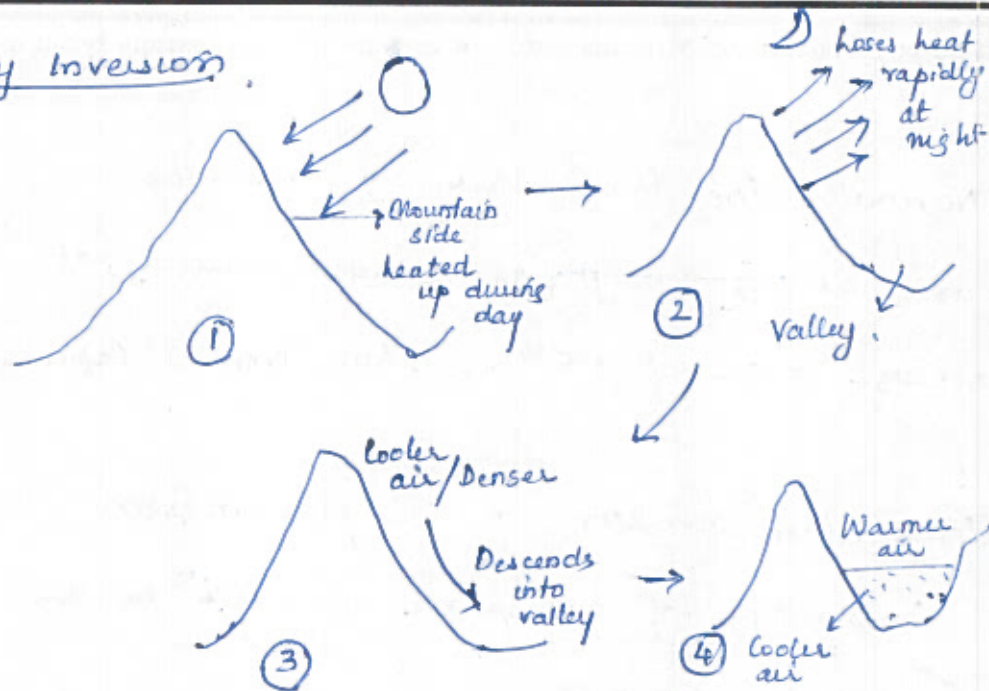 y Inversion.
Mountain
side
heated
up during
day
①
Loses heat
rapidly
at
night
②
Valley.
Cooler
air/Denser
Descends
into
valley
③
Warmer
air
④ Cooler
air